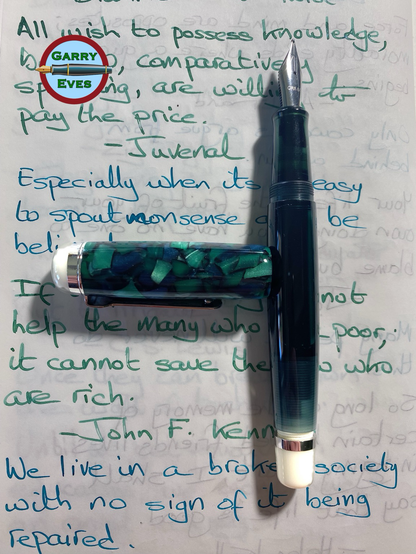 All wish to possess knowledge,
comparatively
are
pay the price.
-Juvenal.
Especially when its easy
to spout nonsense be
If not
help the many who poor,
it cannot save the who
are rich.
-John F.
We live in a society
with no sign of it being
repaired.
GARRY
EVES